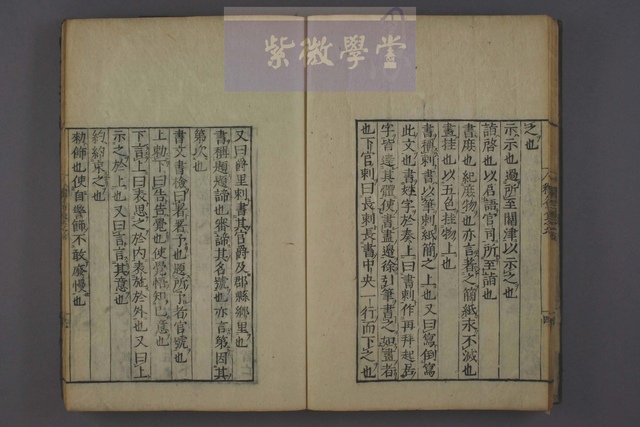 紫微學堂
之也
示示也過所至關津以示之也
詣啓也以啓語官司所至詣也
書庶也紀庶物也亦言著之簡紙永不滅也
畫挂也以五色挂物上也
書稱刺書以筆刺紙簡之上也又曰寫倒寫
此文也書姓字於奏上曰書刺作再拜起居
字皆達其體使書盡邊徐引筆書之如畫者
也下官刺曰長刺長書中央一行而下之也
又曰爵里刺書其官爵及郡縣鄉里也
書稱題題諦也審諦其名號也亦言第因其
第次也
書文書檢曰署署予也題所予者官號也
上勑下曰告告覺也使覺悟知己意也
下言上曰表思之於內表施於外也又曰上
示之於上也又曰言言其意也
約約束之也
勑飾也使自警飾不敢廢慢也